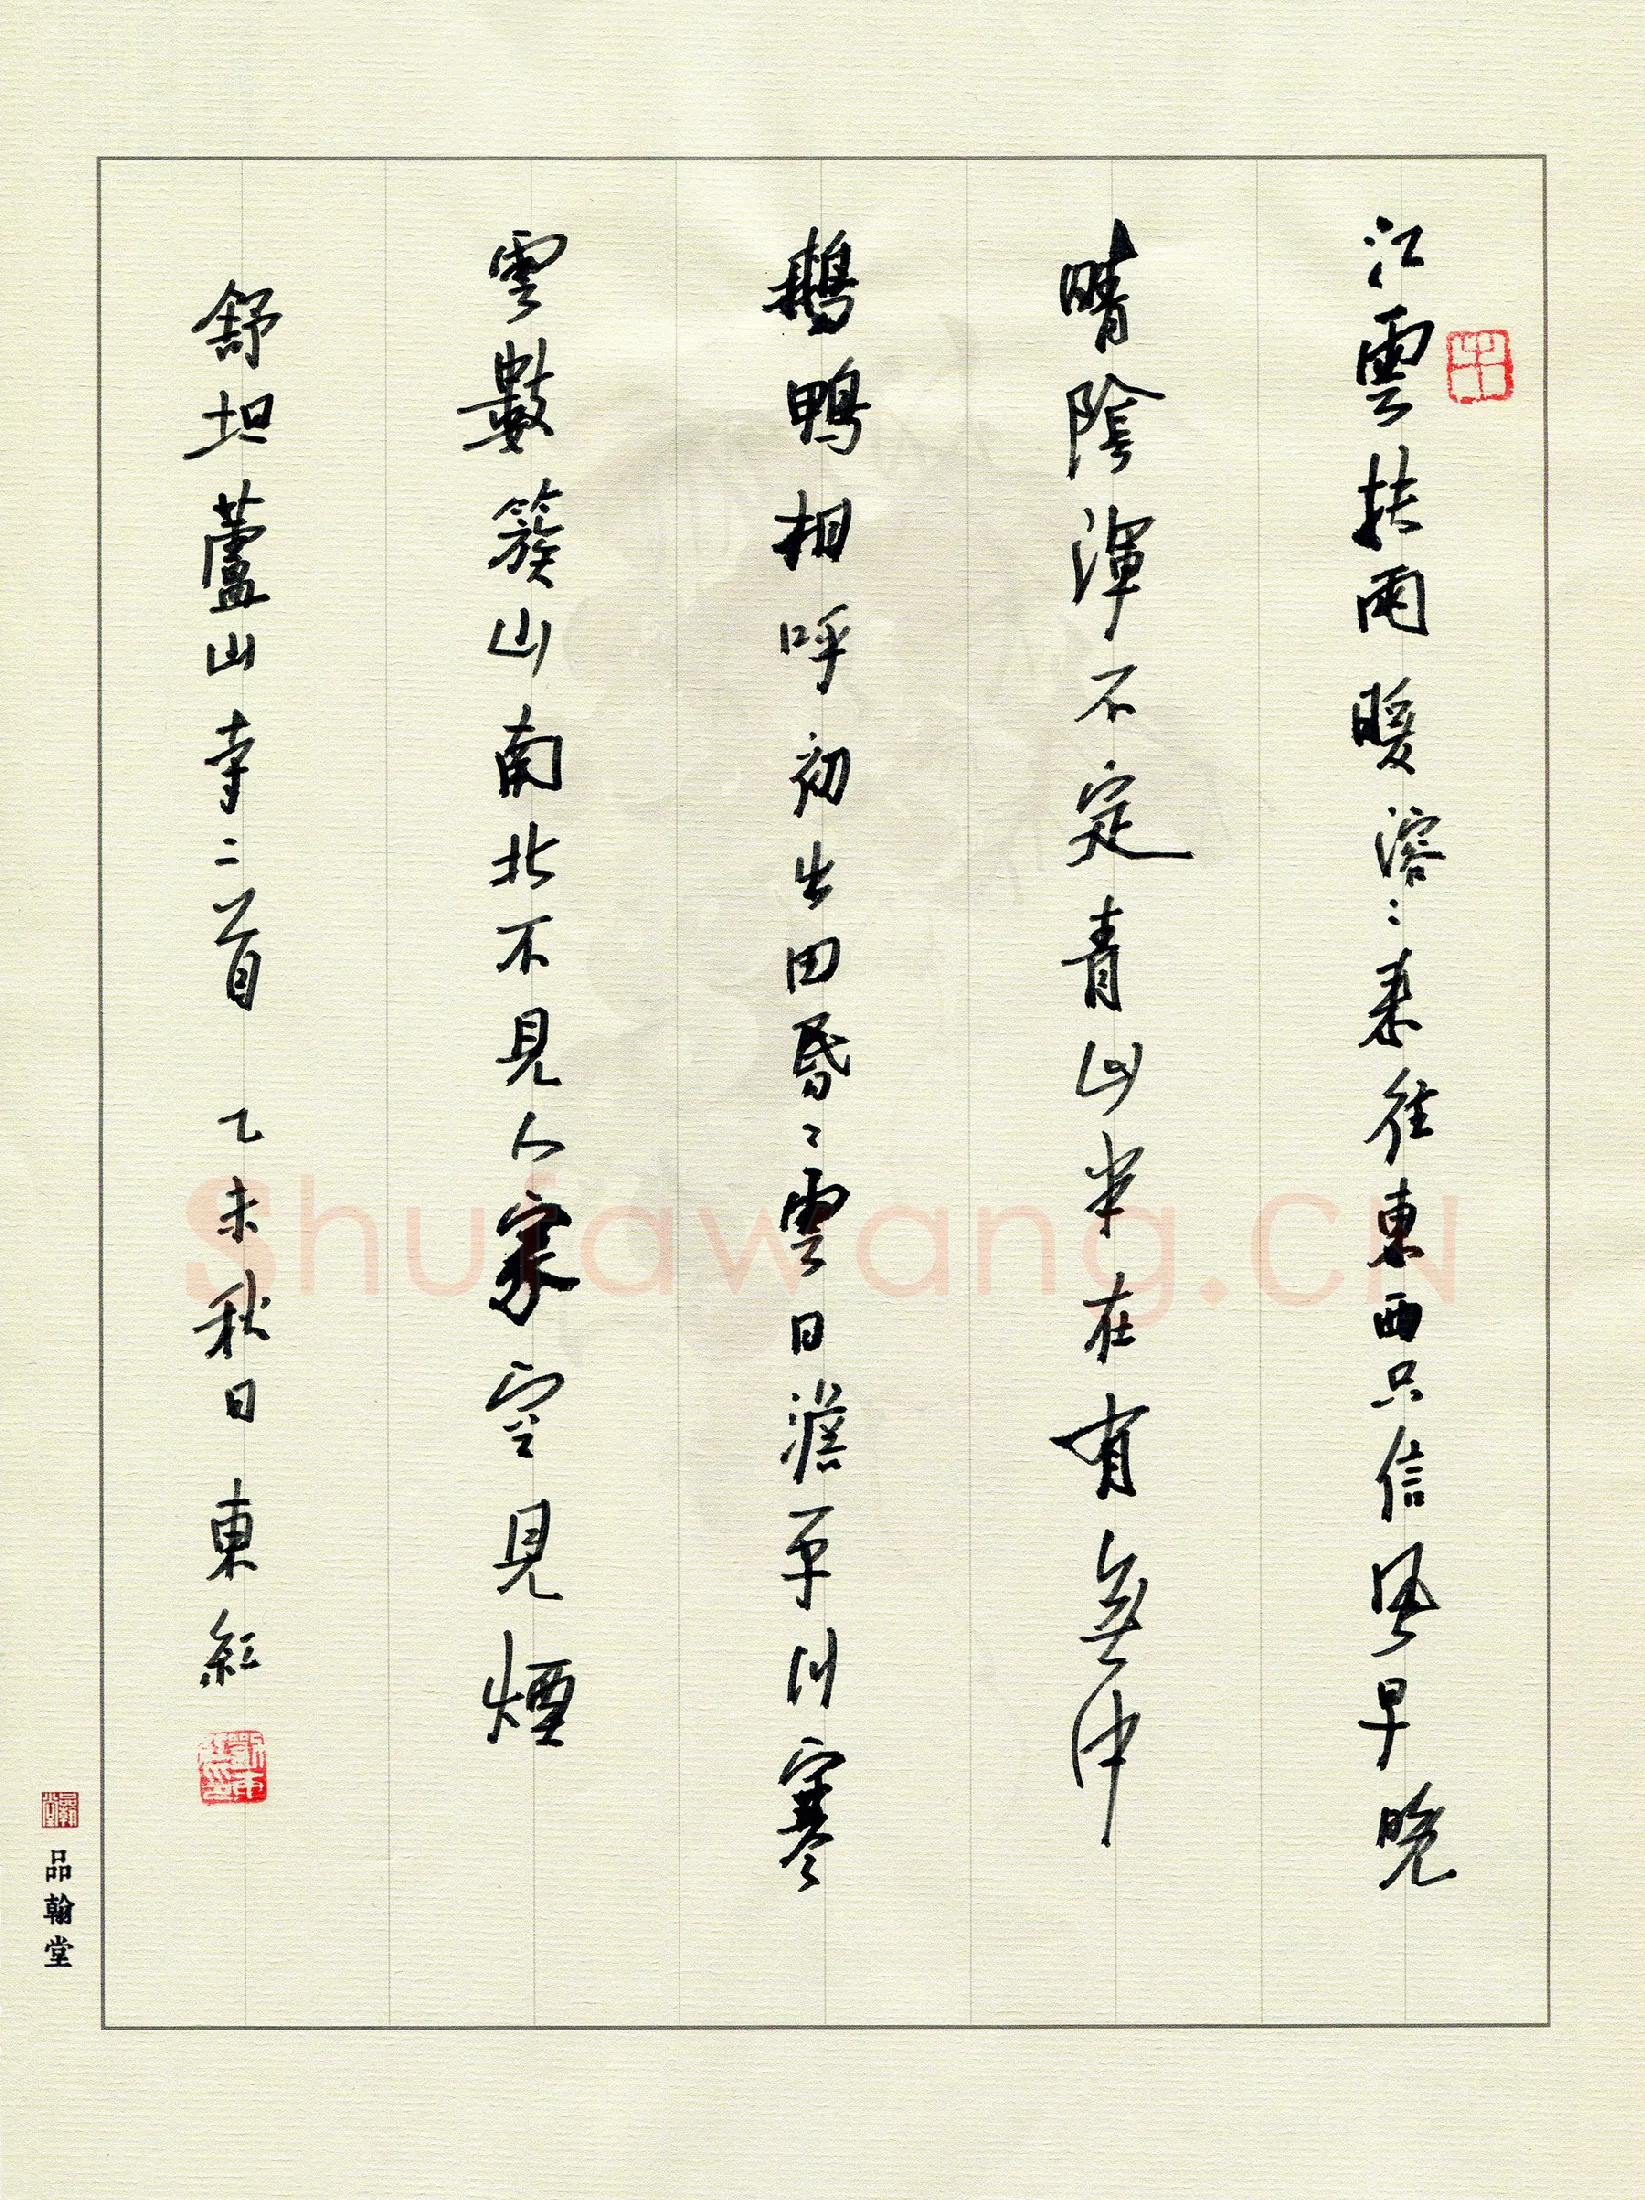 江雲扶雨暖溶〻来往東西只信風早晚
晴陰渾不定青山半在有無中
鵝鴨相呼初出田昏〻雲日澹平川寒
雲數簇山南北不見人家空見煙
舒坦蘆山寺二首 乙未秋日東紅
品翰堂
Shufawang.CN